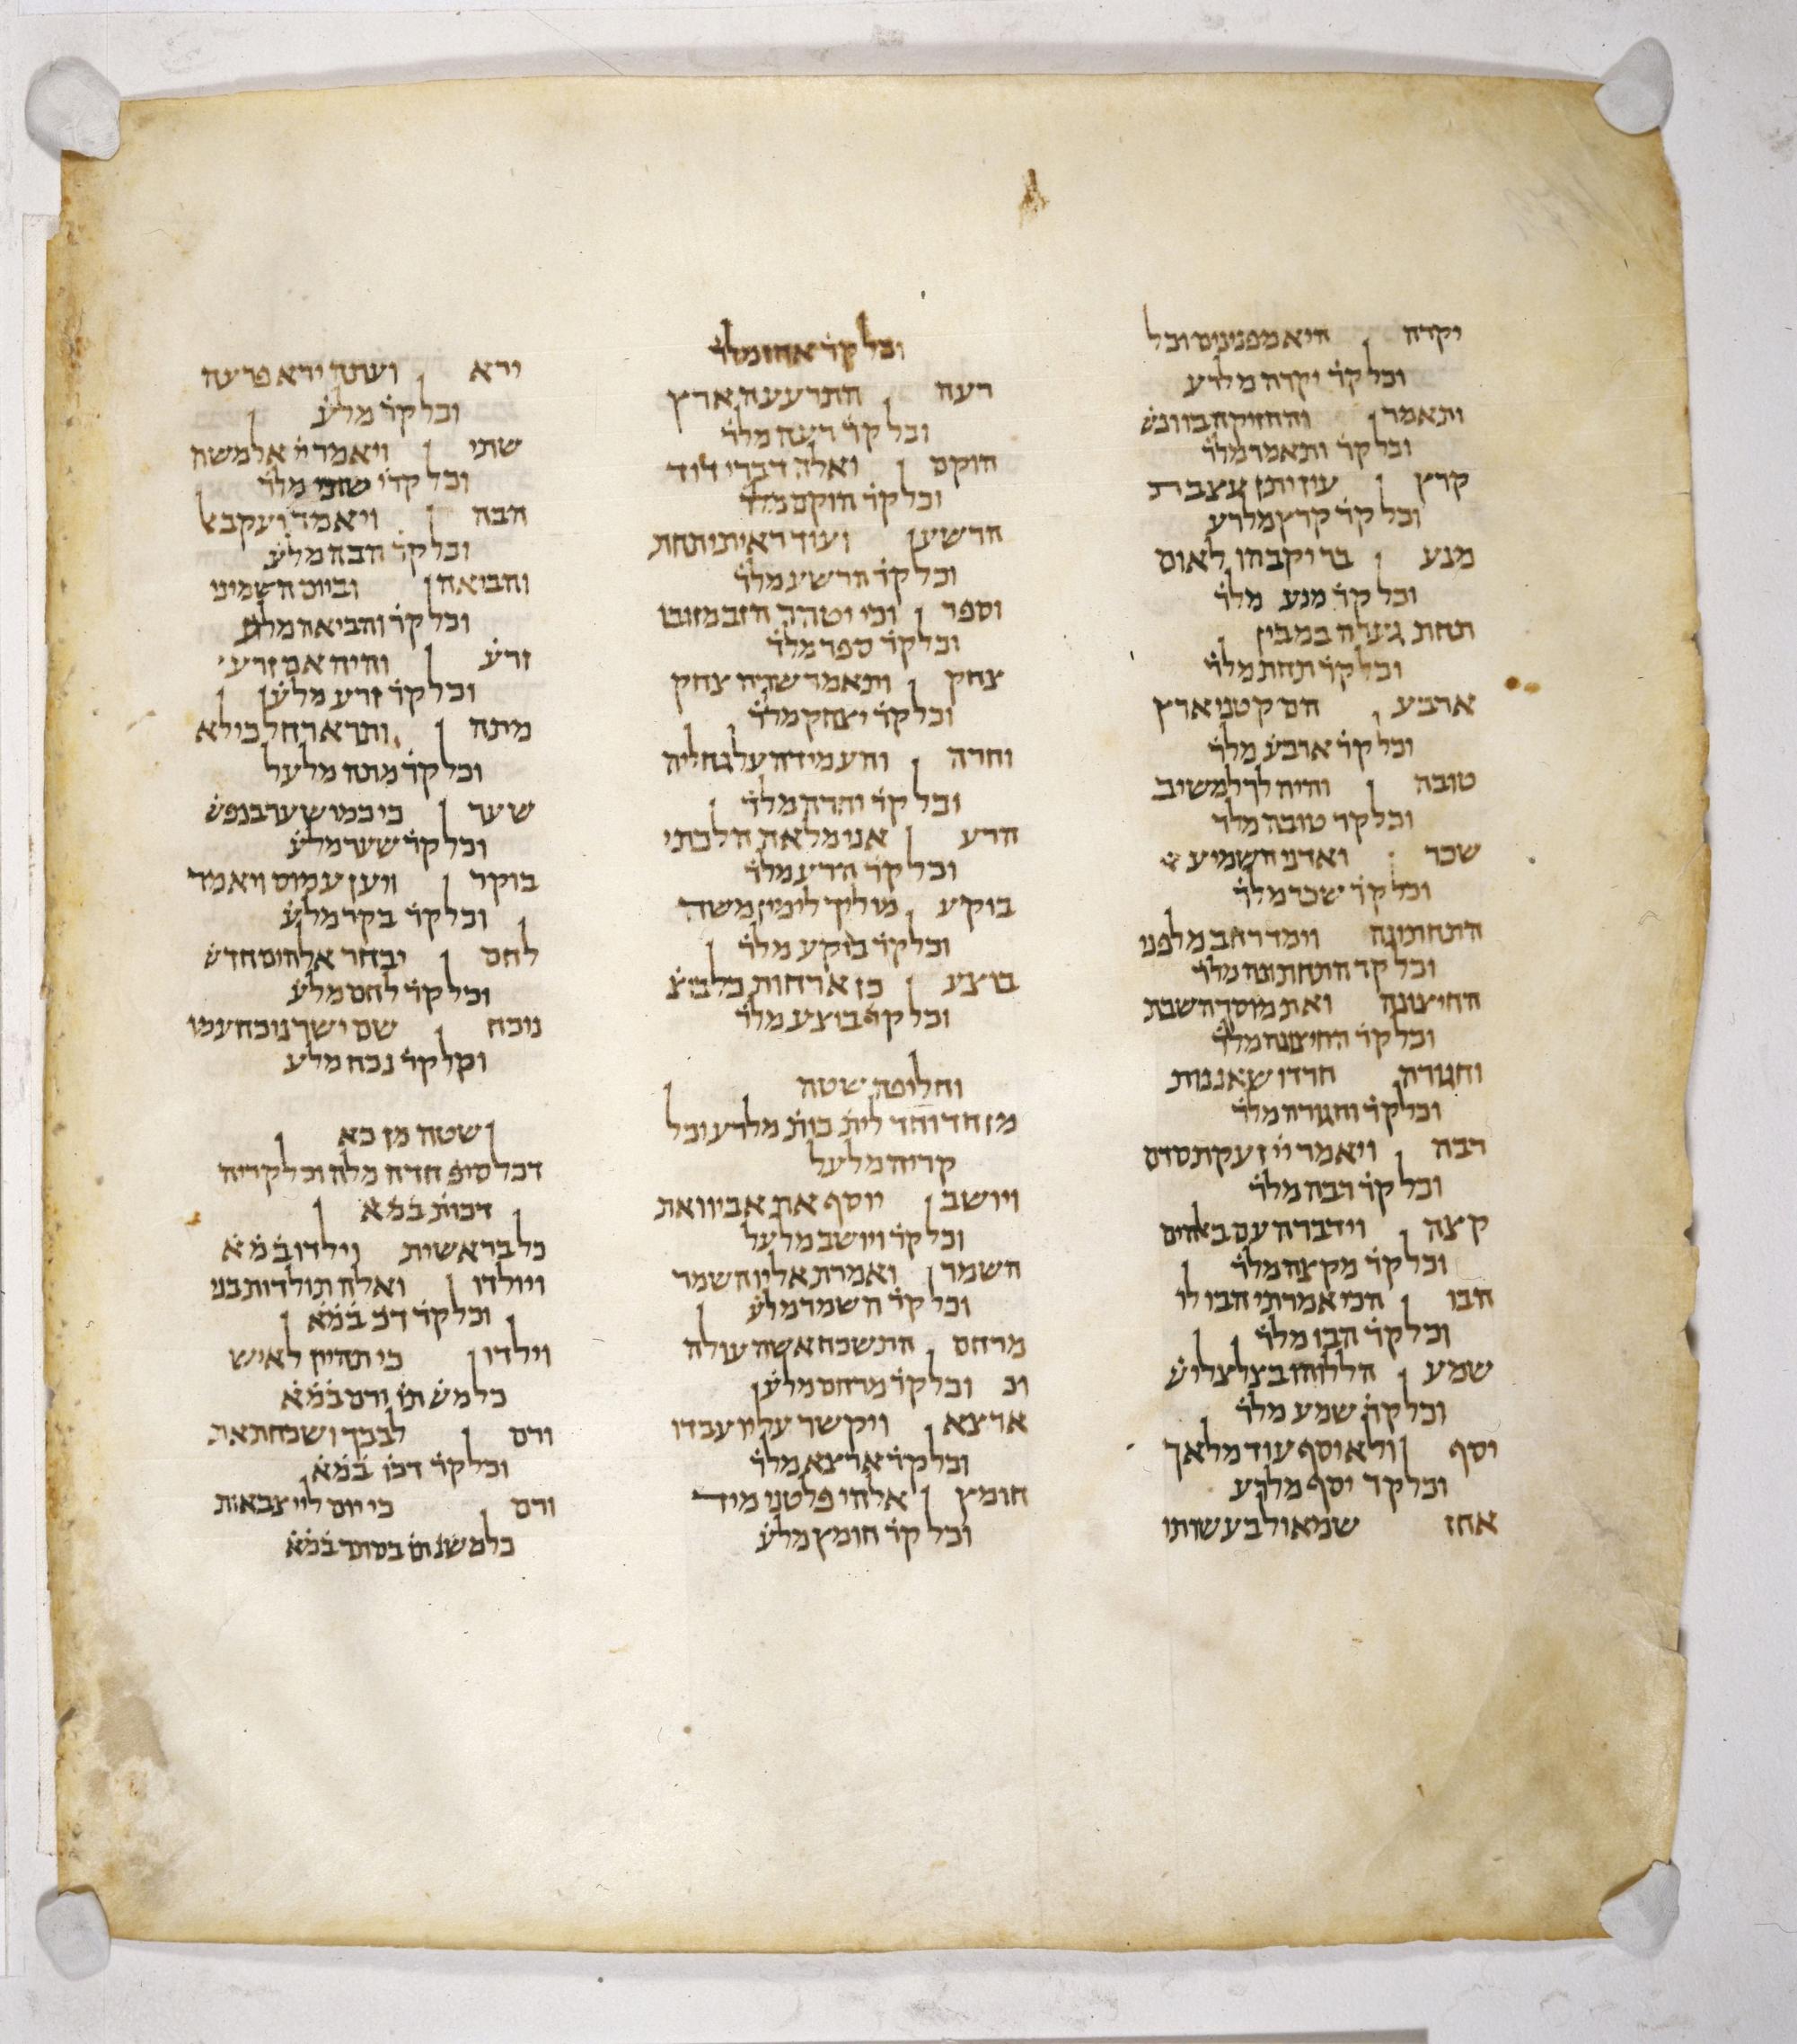 יקרה היא מפנינים וכל
וכל קר̇ יקרה מלרע
ותאמר והחזיקה בו ונש̇
וכל קר̇ ותאמר מלר̇
קרץ עין יתן עצבת
וכל קר̇ קרץ מלרע
מנע בר יקבהו לאום
וכל קר̇ מנע מלר̇
תחת גערה במבין
וכל קר̇ תחת מלר̇
ארבע הם קטני ארץ
וכל קר̇ ארבע מלר̇
טובה והיה לך למשיב
וכל קר̇ טובה מלר̇
שכר ואדני השמיע
וכל קר̇ שכר מלר̇
התחתונה וימד רחב מלפני
וכל קר̇ התחתונה מלר̇
החיצונה ואת מוסך השבת
וכל קר̇ החיצונה מלר̇
וחגורה חרדו שאננות
וכל קר̇ וחגורה מלר̇
רבה ויאמר ייי זעקת סדם
וכל קר̇ רבה מלר̇
קצה וידבר העם באלהים
וכל קר̇ מקצה מלר̇
הבו הכי אמרתי הבו לי
וכל קר̇ הבו מלר̇
שמע הללוהו בצלצלי ש̇
וכל קר̇ שמע מלר̇
יסף ולא יוסף עוד מלאך
וכל קר̇ יסף מלרע
אחז שמאול בעשותו
וכל קר̇ אחז מלר̇
רעה התרעעה ארץ
וכל קר̇ רעה מלר̇
הוקם ואלה דברי דויד
וכל קר̇ הוקם מלר̇
הרשע ועוד ראיתי תחת
וכל קר̇ הרשע מלר̇
וספר וכי יטהר הזב מזובו
וכל קר̇ ספר מלר̇
צחק ותאמר שרה צחק
וכל קר̇ יצחק מלר̇
וחרה והעמידה על גחליה
וכל קר̇ וחרה מלר̇
הרע אני מלאת הלכתי
וכל קר̇ הרע מלר̇
בוקע מוליך לימין משה
וכל קר̇ בוקע מלר̇
בוצע כן ארחות כל בוצ̇
וכל קר̇ בוצע מלר̇
וחליפה שטה
מן חד וחד לית כות מלרע וכל
קריה מלעל
ויושב יוסף את אביו ואת
וכל קר̇ ויושב מלעל
השמר ואמרת אליו השמר
וכל קר̇ השמר מלע̇
מרחם התשכח אשה עולה
וכ וכל קר̇ מרחם מלע̇
ארצא ויקשר עליו עבדו
וכל קר̇ ארצא מלר̇
חומץ אלהי פלטני מיד
וכל קר̇ חומץ מלע̇
ירא ועתה ירא פרעה
וכל קר̇ מלע̇
שתי ויאמר ה̇ אל משה
וכל קר̇י שתי מלר̇
הבה ויאמר יעקב אל
וכל קר̇ הבה מלע̇
והביאה וביום השמיני
וכל קר̇ והביאה מלע̇
זרע והיה אם זרעי
וכל קר̇ זרע מלע̇
מתה ותרא רחל כי לא
וכל קר̇ מתה מלעל
שער כי כמו שער בנפש̇
וכל קר̇ שער מלע̇
בוקר ויען עמוס ויאמר
וכל קר̇ בקר מלע̇
לחם יבחר אלהים חדש̇
וכל קר̇ לחם מלע̇
נוכח שם ישר נוכח עמו
וכל קר̇ נכח מלע
שטה מן כא
דכל סיפ̇ חדה מלה וכל קריה
דכות במ̇א̇
כל בראשית וילדו במ̇א̇
ויולדו ואלה תולדות בני
וכל קר̇ דכ̇ במ̇א̇
וילדו כי תהיין לאיש
כל מש̇ תו̇ ורם במ̇א̇
ורם לבבך ושכחת את
וכל קר̇ דכו̇ במ̇א̇
ורם כי יום ליי צבאות